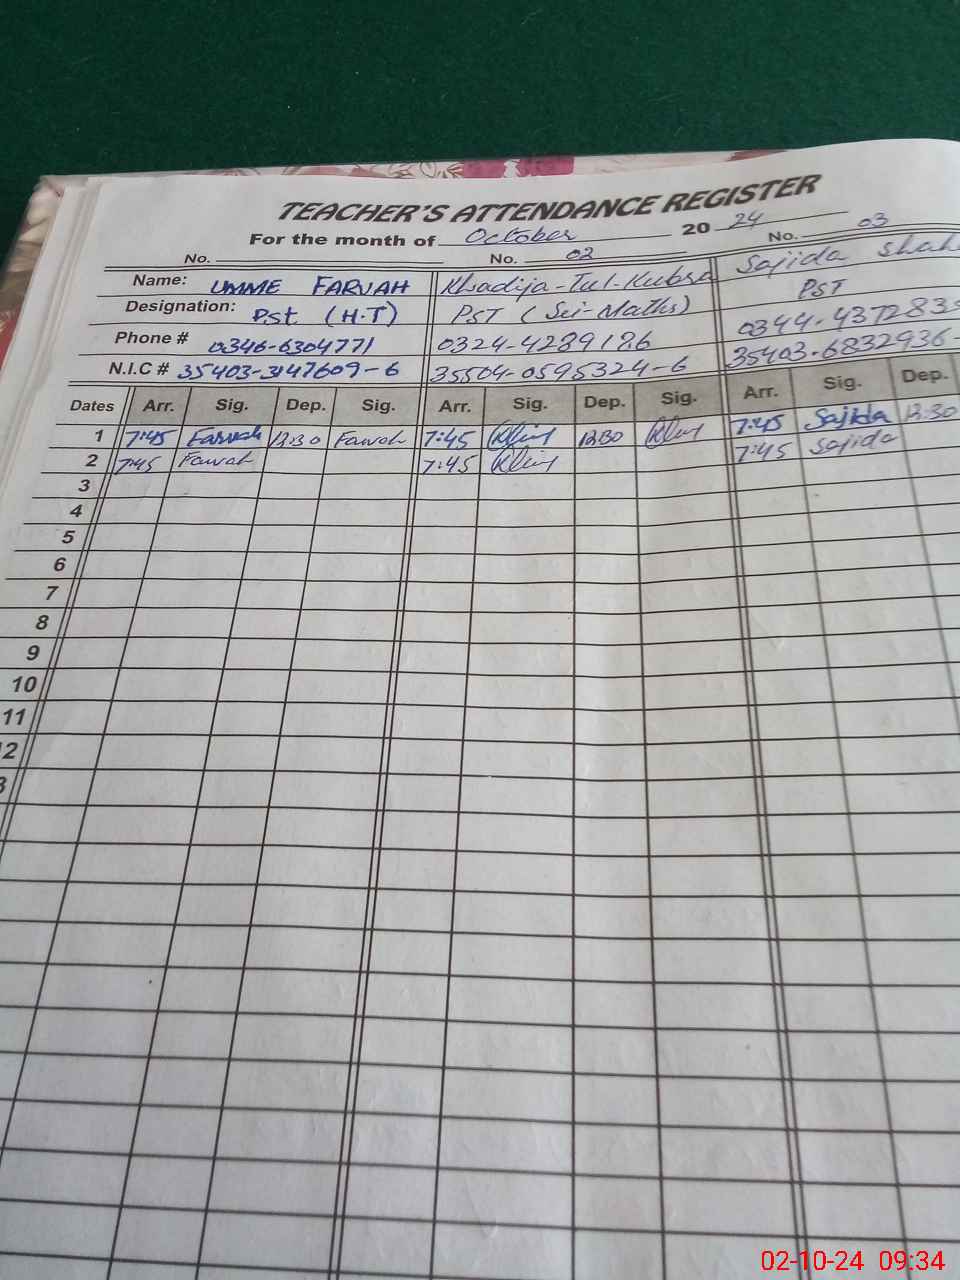 TEACHER'S ATTENDANCE REGISTER
For the month of October 20 24
No. No. 02 No. 03
Name: UMME FARVAH Khadija-Tul-Kubra Sajida Shah
Designation: P.st (H.T) PST (Sci-Maths) PST
Phone # 0346-6304771 0324-4289186 0344-437283
N.I.C # 35403-3147609-6 35504-0595324-6 35403-6832936-
Dates Arr. Sig. Dep. Sig. Arr. Sig. Dep. Sig. Arr. Sig. Dep.
1 7:45 Farvah 12:30 Farvah 7:45 12:30 7:45 Sajida 12:30
2 7:45 Farvah 7:45 7:45 Sajida
3
4
5
6
7
8
9
10
11
12
3
02-10-24 09:34